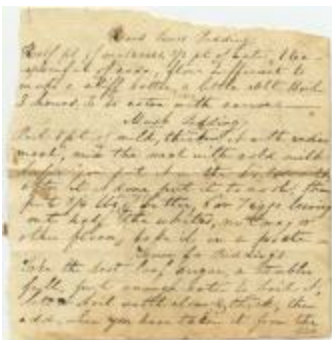 Hard Times Pudding
Half pt of molasses 1/2 pt of water, 1 tea-
spoonful of soda, flour sufficient to
make a stiff batter, a little salt. Boil
3 hours, to be eaten with sauce
Mush Pudding
Put 1 pt of milk, thicken it with
meal, mix the meal with cold milk
before you put it in the
after it is done put it to cool, then
put butter, 6 or 7 eggs leaving
out half the whites,
other flavor, bake it in a paste
for Puddings
Take the best loaf sugar, a tumbler
full, just enough water to boil it,
boil until almost thick, then
add, when you have taken it from the